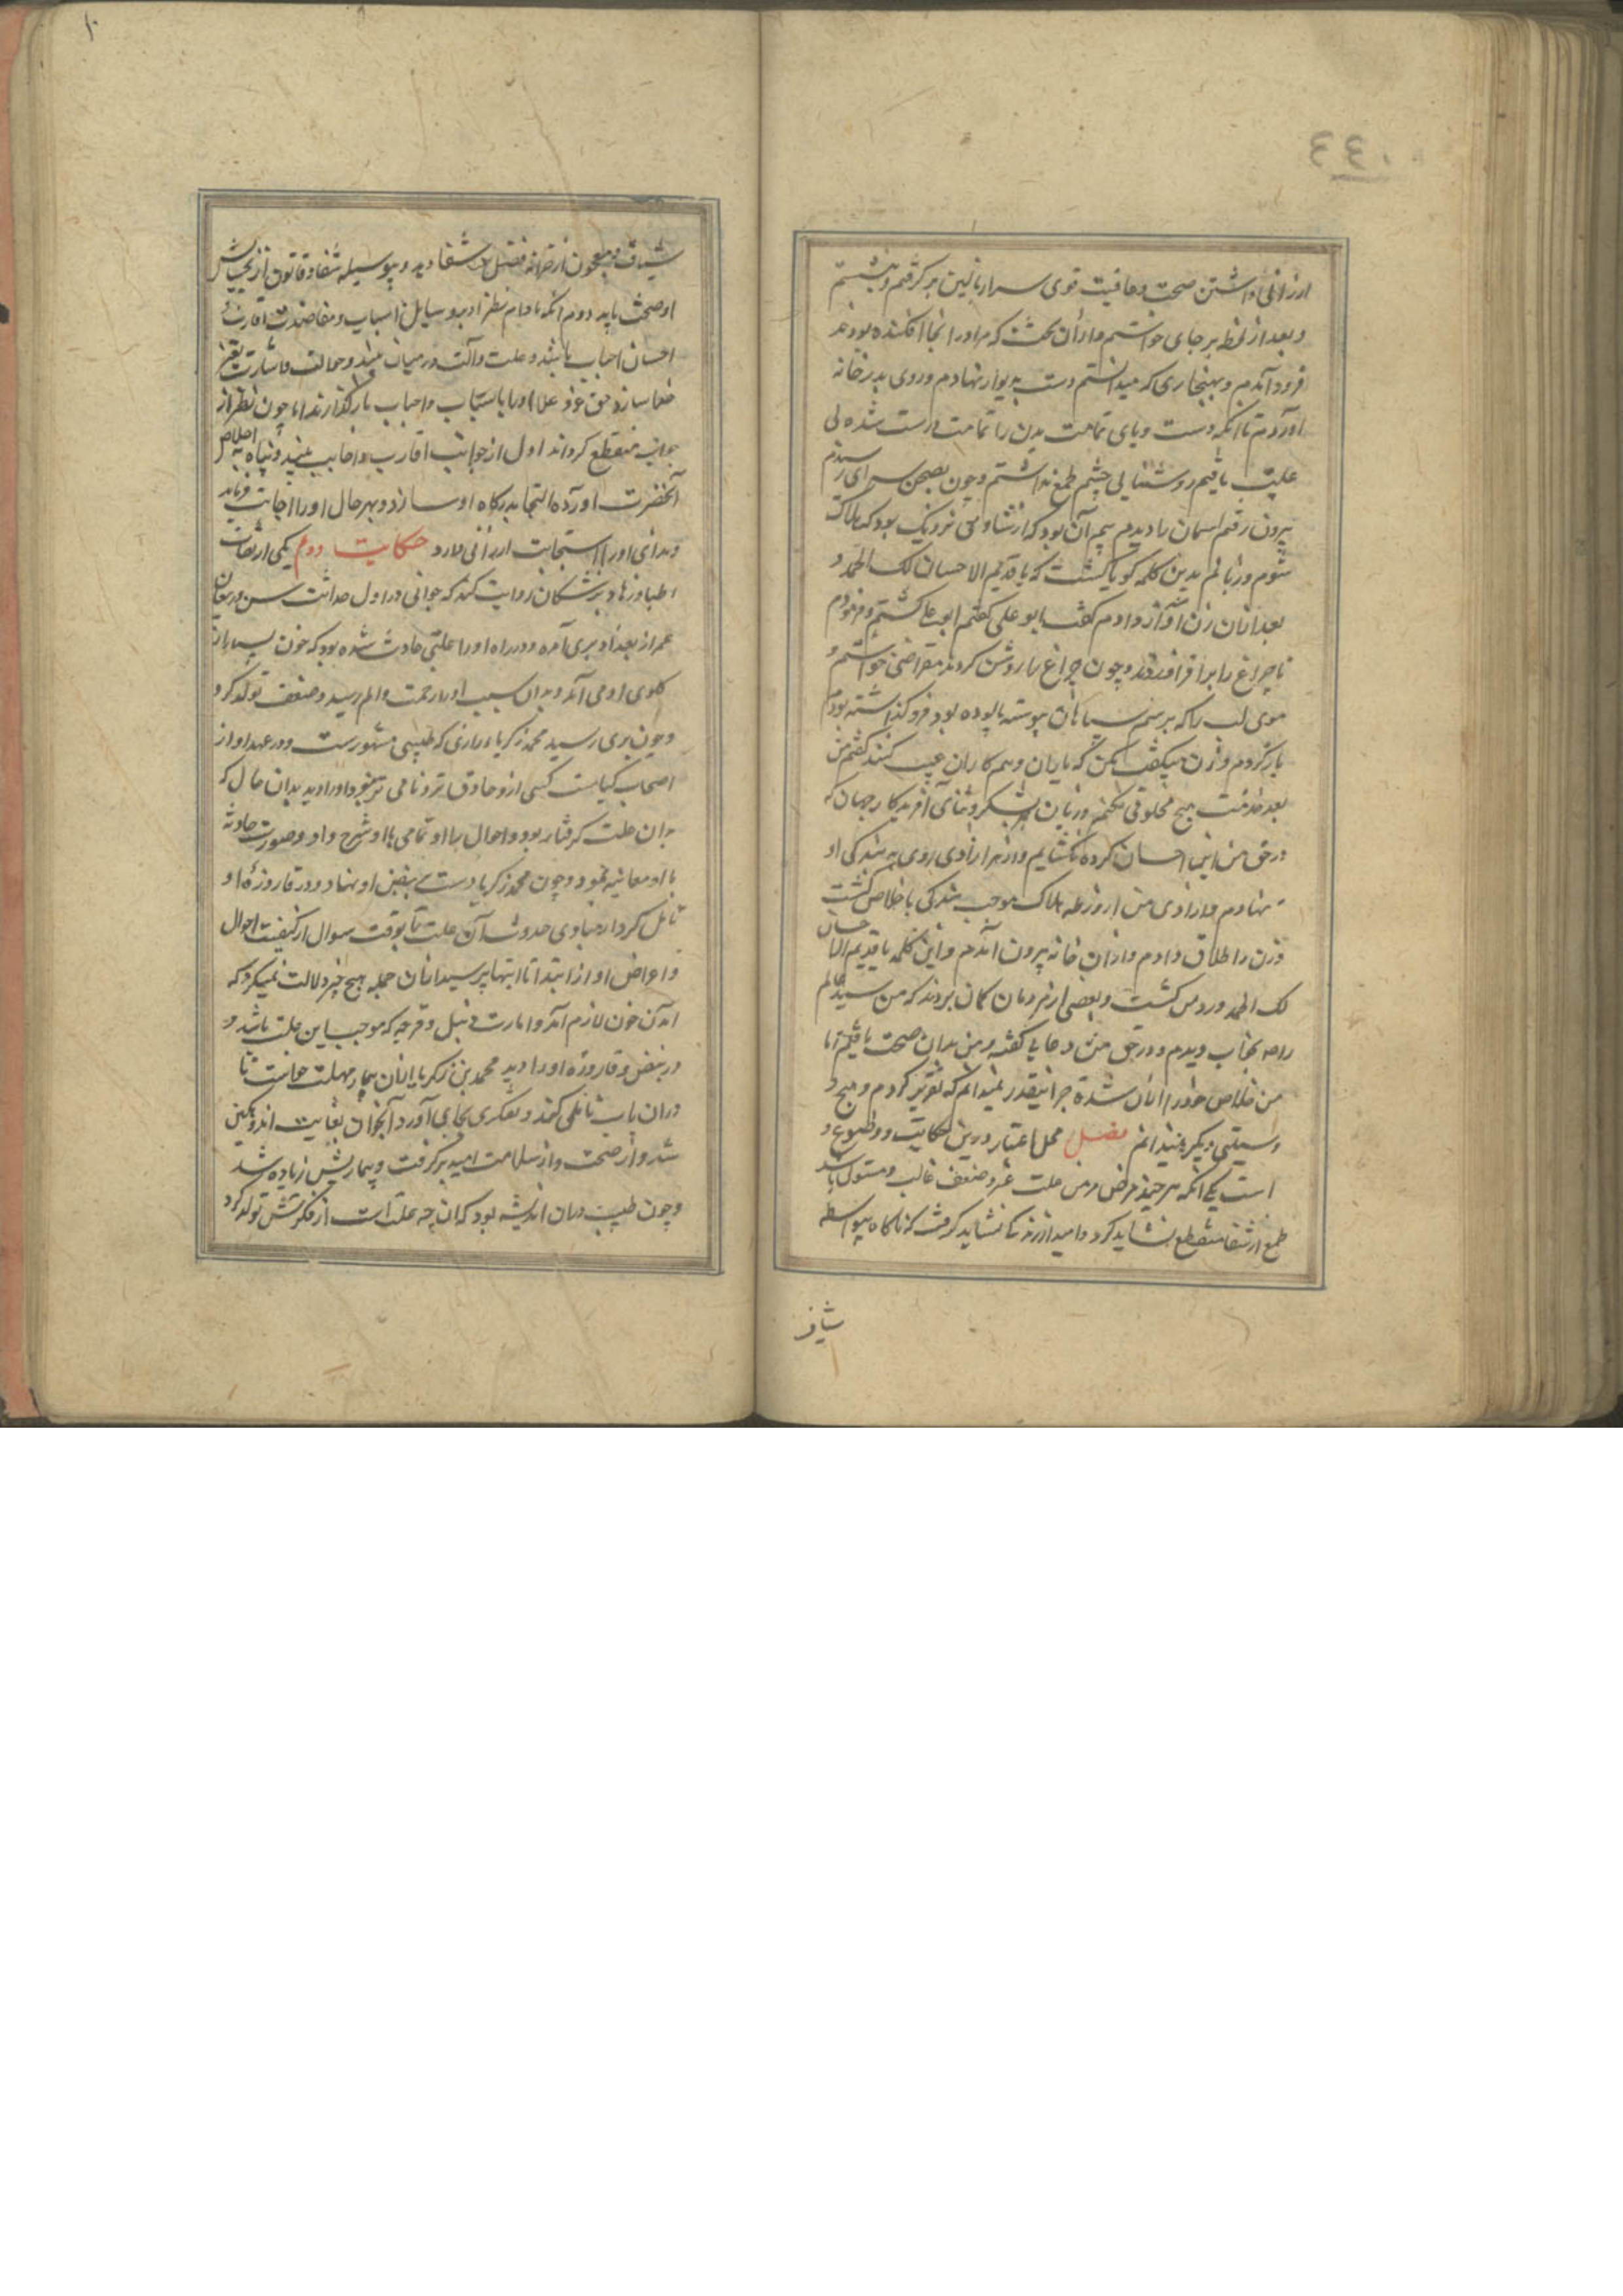 ٤٤٠
ارزانی داشتن صحت و عافیت قوی سر از بالین برگرفتم و بنشستم
و بعد از لحظه برجای خواستم و از آن تخت که مرا در انجا افکنده بودند
فرود آمدم و بهنجاری که میدانستم دست به دیوار نهادم و روی بدر خانه
آوردم تا انکه دست و پای تمامت بدن را تمامت درست شده بی
علت یافتم روشنایی چشم طمع نداشتم و چون بصحن سرای رسیدم
بیرون رفتم اسمان را دیدم بیم آن بود که از شادی نزدیک بود که هلاک
شوم و زبانم بدین کلمه گویا گشت که یا قدیم الاحسان لک الحمد و
بعد از ان زن را آواز دادم گفت ابو علی گفتم ابو علی گشتم و فرمودم
تا چراغ را برافروزند و چون چراغ را روشن کردند مقراضی خواستم و
موی لب را که برسم سپاهیان پیوسته بوده بود فرو گذاشته بودم
باز کردم و زن میگفت مکن که یاران و همکاران عیب کنند گفتم من
بعد خدمت هیچ مخلوقی نکنم و زبان جز بشکر و ثنای آفریدکار جهان که
در حق من این احسان کرده نکشایم و از سر ازادی روی به بندکی او
نهادم و ازادی من از ورطه هلاک موجب بندکی با خلاص گشت
و زن را طلاق دادم و از ان خانه بیرون آمدم و این کلمه یا قدیم الاحسان
لک الحمد ورد من گشت و بعضی از مردمان گمان بردند که من سید عالم
را بخواب دیدم و در حق من دعایی گفته و من بدان صحت یافتم اما
من خلاص خود را از ان شده جز اینقدر نمیدانم که تقریر کردم و هیچ
وسیلتی دیگر نمیدانم فصل محل اعتبار درین حکایت دو موضوع
است یکی انکه هر چند مرض مزمن علت غیر و ضعف غالب و مستولی باشد
طمع از شفا منقطع نشاید کرد و امید از زندگانی نشاید گرفت که ناگاه بیواسطه
شیاف
شیاف و معجون از خزانه فضل شفا دید و بیوسیله شفا و قانون از
او صحت یابد دوم انکه مادام نظر ادمی بر وسایل اسباب و معاضدت اقارب و
احسان احباب باشد و علت و آلت در میان بیند و حوالت و اشارت بغیر
خدا سازد حق عز و علا او را با اسباب و احباب باز گذارند اما چون نظر از
جوانب منقطع گرداند اول از جوانب اقارب و اجانب بیند و پناه به اخلاص
آنحضرت اورده التجا بدرگاه او سازد و بهر حال او را اجابت فرماید
و ندای او را استجابت ارزانی دارد حکایت دوم یکی از ثقات
اطبا و زهاد پزشکان روایت کند که جوانی در اول حداثت سن و ریعان
عمر از بغداد بری آمده و در راه او را علتی حادث شده بود که خون بسیار از
گلوی او می آمد و بدان سبب او را زحمت و الم رسید و ضعف تولد کرد
و چون بری رسید محمد زکریا رازی که طبیبی مشهورست و در عهد او از
اصحاب کیاست کسی از و حاذق تر و نامی تر نبود او را دید بدان حال که
بدان علت گرفتار بود و احوال را با او تمامی با او شرح داد و صورت حادثه
با او معاینه نمود و چون محمد زکریا دست بر نبض او نهاد و در قاروره او
تامل کرد از مبادی حدوث آن علت تا بوقت سوال از کیفیت احوال
و اعراض او از ابتدا تا انتها پرسید از ان جمله هیچ چیز دلالت نمیکرد که
آمدن خون لازم آمد و امارت دبیل و قرحه که موجب این علت باشد
در نبض و قاروره او را دید محمد بن زکریا از ان بیمار مهلت خواست تا
در ان باب تاملی کند و تفکری بجای آورد آنجوان بغایت اندوهگین
شد و از صحت و از سلامت امید برگرفت و بیماریش زیاده شد
و چون طبیب در ان اندیشه بود که ان چه علت است از فکرتش تولد کرد